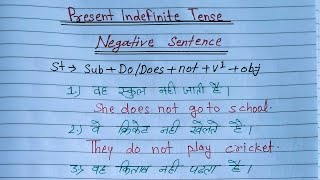 Present Indefinite Tense
Negative Sentence
St → Sub + Do/Does + not + v¹ + obj
1.) वह स्कुल नही जाती है।
She does not go to school.
2.) वे क्रिकेट नही खेलते है।
They do not play cricket.
3.) वह किताब नही पढता है।